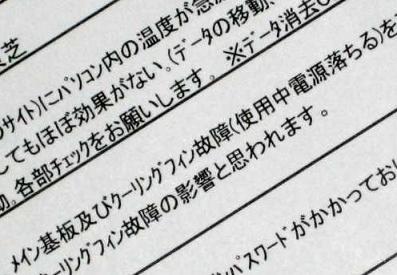 芝
サイト)にパソコン内の温度が急
してもほぼ効果がない。(データの移動、
各部チェックをお願いします。 ※データ消去
メイン基板及びクーリングフィン故障(使用中電源落ちる)を
ーリングフィン故障の影響と思われます。
ンパスワードがかかってお